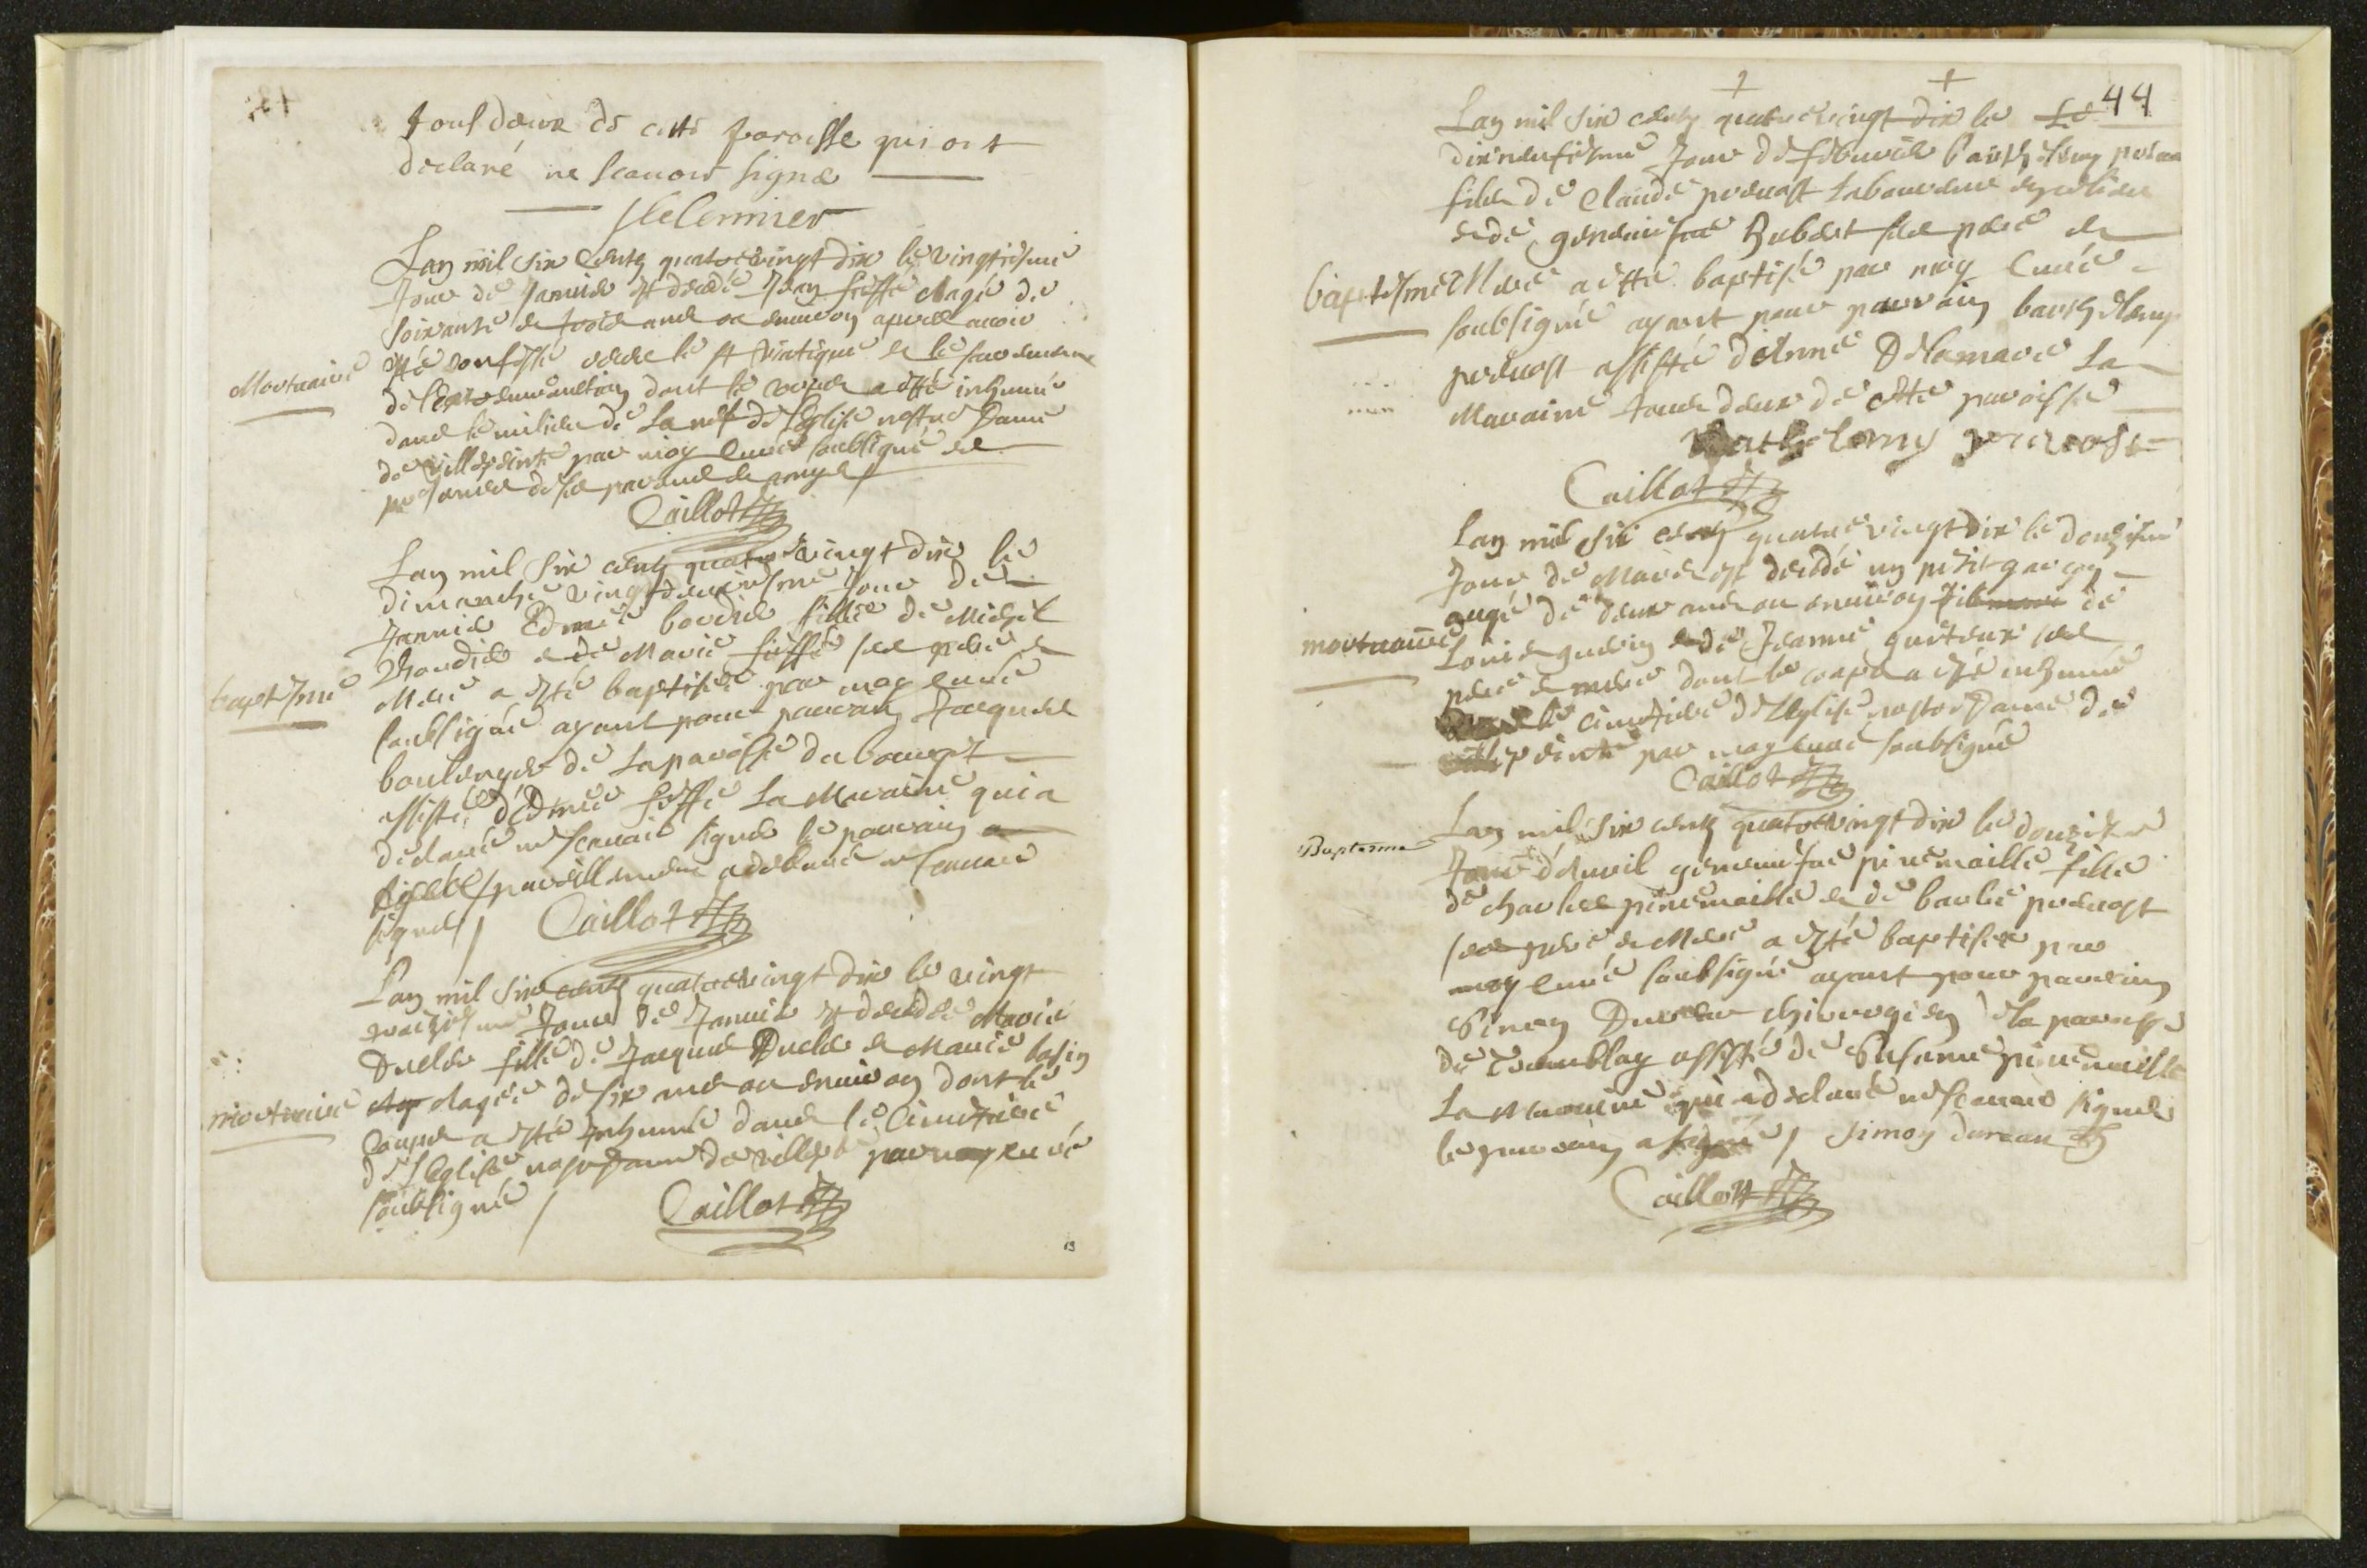 tous deux de cette paroisse qui ont
declaré ne scauoir signer
Lan mil six cents quatrevingt dix le vingtiesme
Jour de Januier est decedé Jean fieffé aagé de
soixante et trois ans ou enuiron apres auoir
esté confessé receu le st viatique et le sacrement
Mortuaire
de l'Extremeonction dont le corps a esté inhumé
dans le milieu de La nef de l'Eglise nostre Dame
de Villepinte par moy Curé soubsigné en
presence de ses parents et amys
Caillot
Lan mil six cents quatrevingt dix le
dimanche vingtdeuxiesme Jour de
Januier Edmée bordier fille de Michel
et de Marie fieffé ses pere et
baptesme
Mere a esté baptisée par moy curé
soubsigné ayant pour parrain Jacques
boulenger de La paroisse du bourget
assisté d'Edmée fieffé La Maraine qui a
declaré ne scauoir signer le parrain a
pareillement a declaré ne scauoir
signer / Caillot
Lan mil six cents quatrevingt dix le vingt
Jour de Januier est decedée Marie
Duclos fille de Jacques Duclos et Marie basin
mortuaire
aagée de six ans ou enuiron dont le
Corps a esté Inhumé dans le Cimetiere
de l'Eglise nostre Dame de villepte par moy curé
soubsigné / Caillot
13
44
Lan mil six cents quatrevingt dix le Le
dixneufiesme Jour de feburier barthelemy
fils de Claude preuost Laboureur
et de geneuiefue Hubert ses pere et
baptesme
Mere a esté baptisé par moy Curé
soubsigné ayant pour parrain barthelemy
preuost assisté d'Anne Delamare La
Maraine tous deux de cette paroisse
Barthelemy preuost
Caillot
Lan mil six cents quatrevingt dix le douziesme
Jour de Mars est decedé un petit garcon
aagé de deux ans ou enuiron fils de
mortuaire
Louis guerin et de Jeanne ses
pere et mere dont le corps a esté inhumé
dans le cimetiere de l'Eglise nostre Dame de
villepinte par moy curé soubsigné
Caillot
Baptesme
Lan mil six cents quatrevingt dix le douziesme
Jour d'Auril geneuiefue pinemaille fille
de charles pinemaille et de barbe preuost
ses pere et Mere a esté baptisée par
moy curé soubsigné ayant pour parrain
Simon Dureau chirurgien de la paroisse
de Tremblay assisté de Susanne pinemaille
La Maraine qui a declaré ne scauoir signer
le parrain a signé / Simon dureau
Caillot